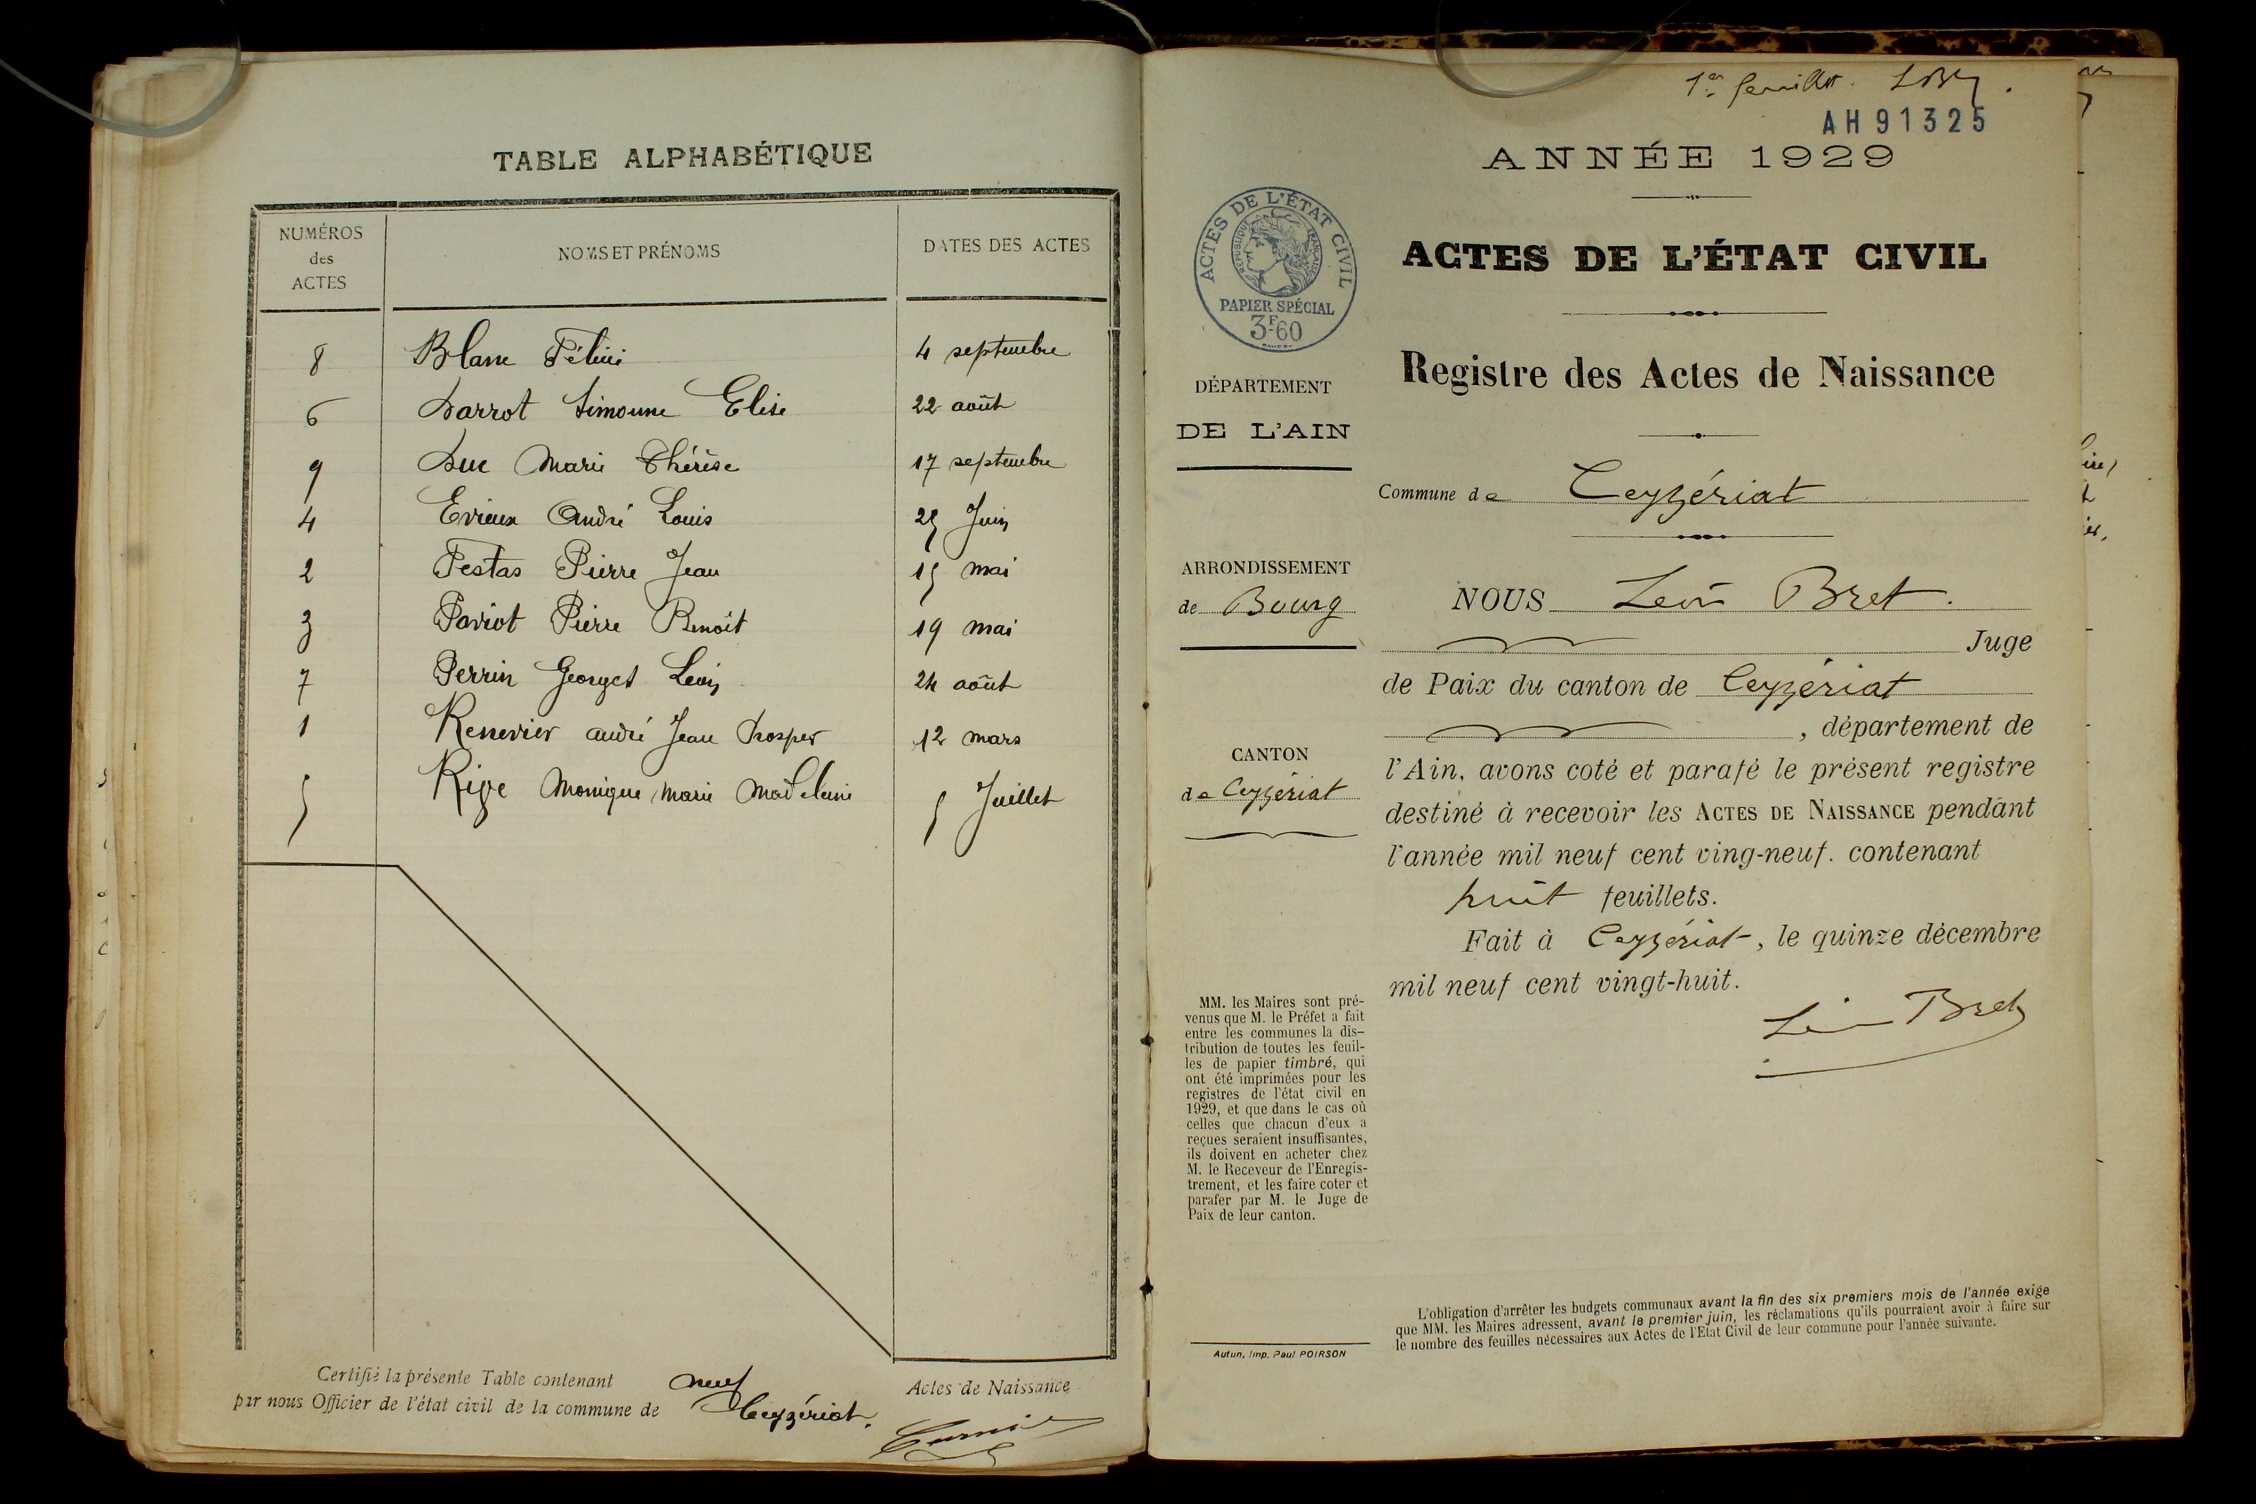 TABLE ALPHABÉTIQUE
NUMÉROS des ACTES
NOMS ET PRÉNOMS
DATES DES ACTES
8 Blanc Félini 4 septembre
6 Darrot Simonne Elise 22 août
9 Duc Marie Thérèse 17 septembre
4 Evieux André Louis 25 Juin
2 Festas Pierre Jean 15 mai
3 Paviot Pierre Benoît 19 mai
7 Perrin Georges Louis 24 août
1 Renevier André Jean Prosper 12 mars
5 Rige Monique Marie Madeleine 5 Juillet
Certifié la présente Table contenant neuf Actes de Naissance
par nous Officier de l'état civil de la commune de Ceyzériat.
1er feuillet.
AH91325
ANNÉE 1929
ACTES DE L'ÉTAT CIVIL
RÉPUBLIQUE FRANÇAISE
PAPIER SPÉCIAL
3F60
ACTES DE L'ÉTAT CIVIL
Registre des Actes de Naissance
DÉPARTEMENT
DE L'AIN
Commune de Ceyzériat
ARRONDISSEMENT
de Bourg
CANTON
de Ceyzériat
NOUS Léon Bret.
Juge
de Paix du canton de Ceyzériat
, département de
l'Ain, avons coté et parafé le présent registre
destiné à recevoir les ACTES DE NAISSANCE pendant
l'année mil neuf cent ving-neuf. contenant
huit feuillets.
Fait à Ceyzériat, le quinze décembre
mil neuf cent vingt-huit.
Léon Bret
MM. les Maires sont pré-
venus que M. le Préfet a fait
entre les communes la dis-
tribution de toutes les feuil-
les de papier timbré, qui
ont été imprimées pour les
registres de l'état civil en
1929, et que dans le cas où
celles que chacun d'eux a
reçues seraient insuffisantes,
ils doivent en acheter chez
M. le Receveur de l'Enregis-
trement, et les faire coter et
parafer par M. le Juge de
Paix de leur canton.
Autun, Imp. Paul POIRSON
L'obligation d'arrêter les budgets communaux avant la fin des six premiers mois de l'année exige
que MM. les Maires adressent, avant le premier juin, les réclamations qu'ils pourraient avoir à faire sur
le nombre des feuilles nécessaires aux Actes de l'Etat Civil de leur commune pour l'année suivante.